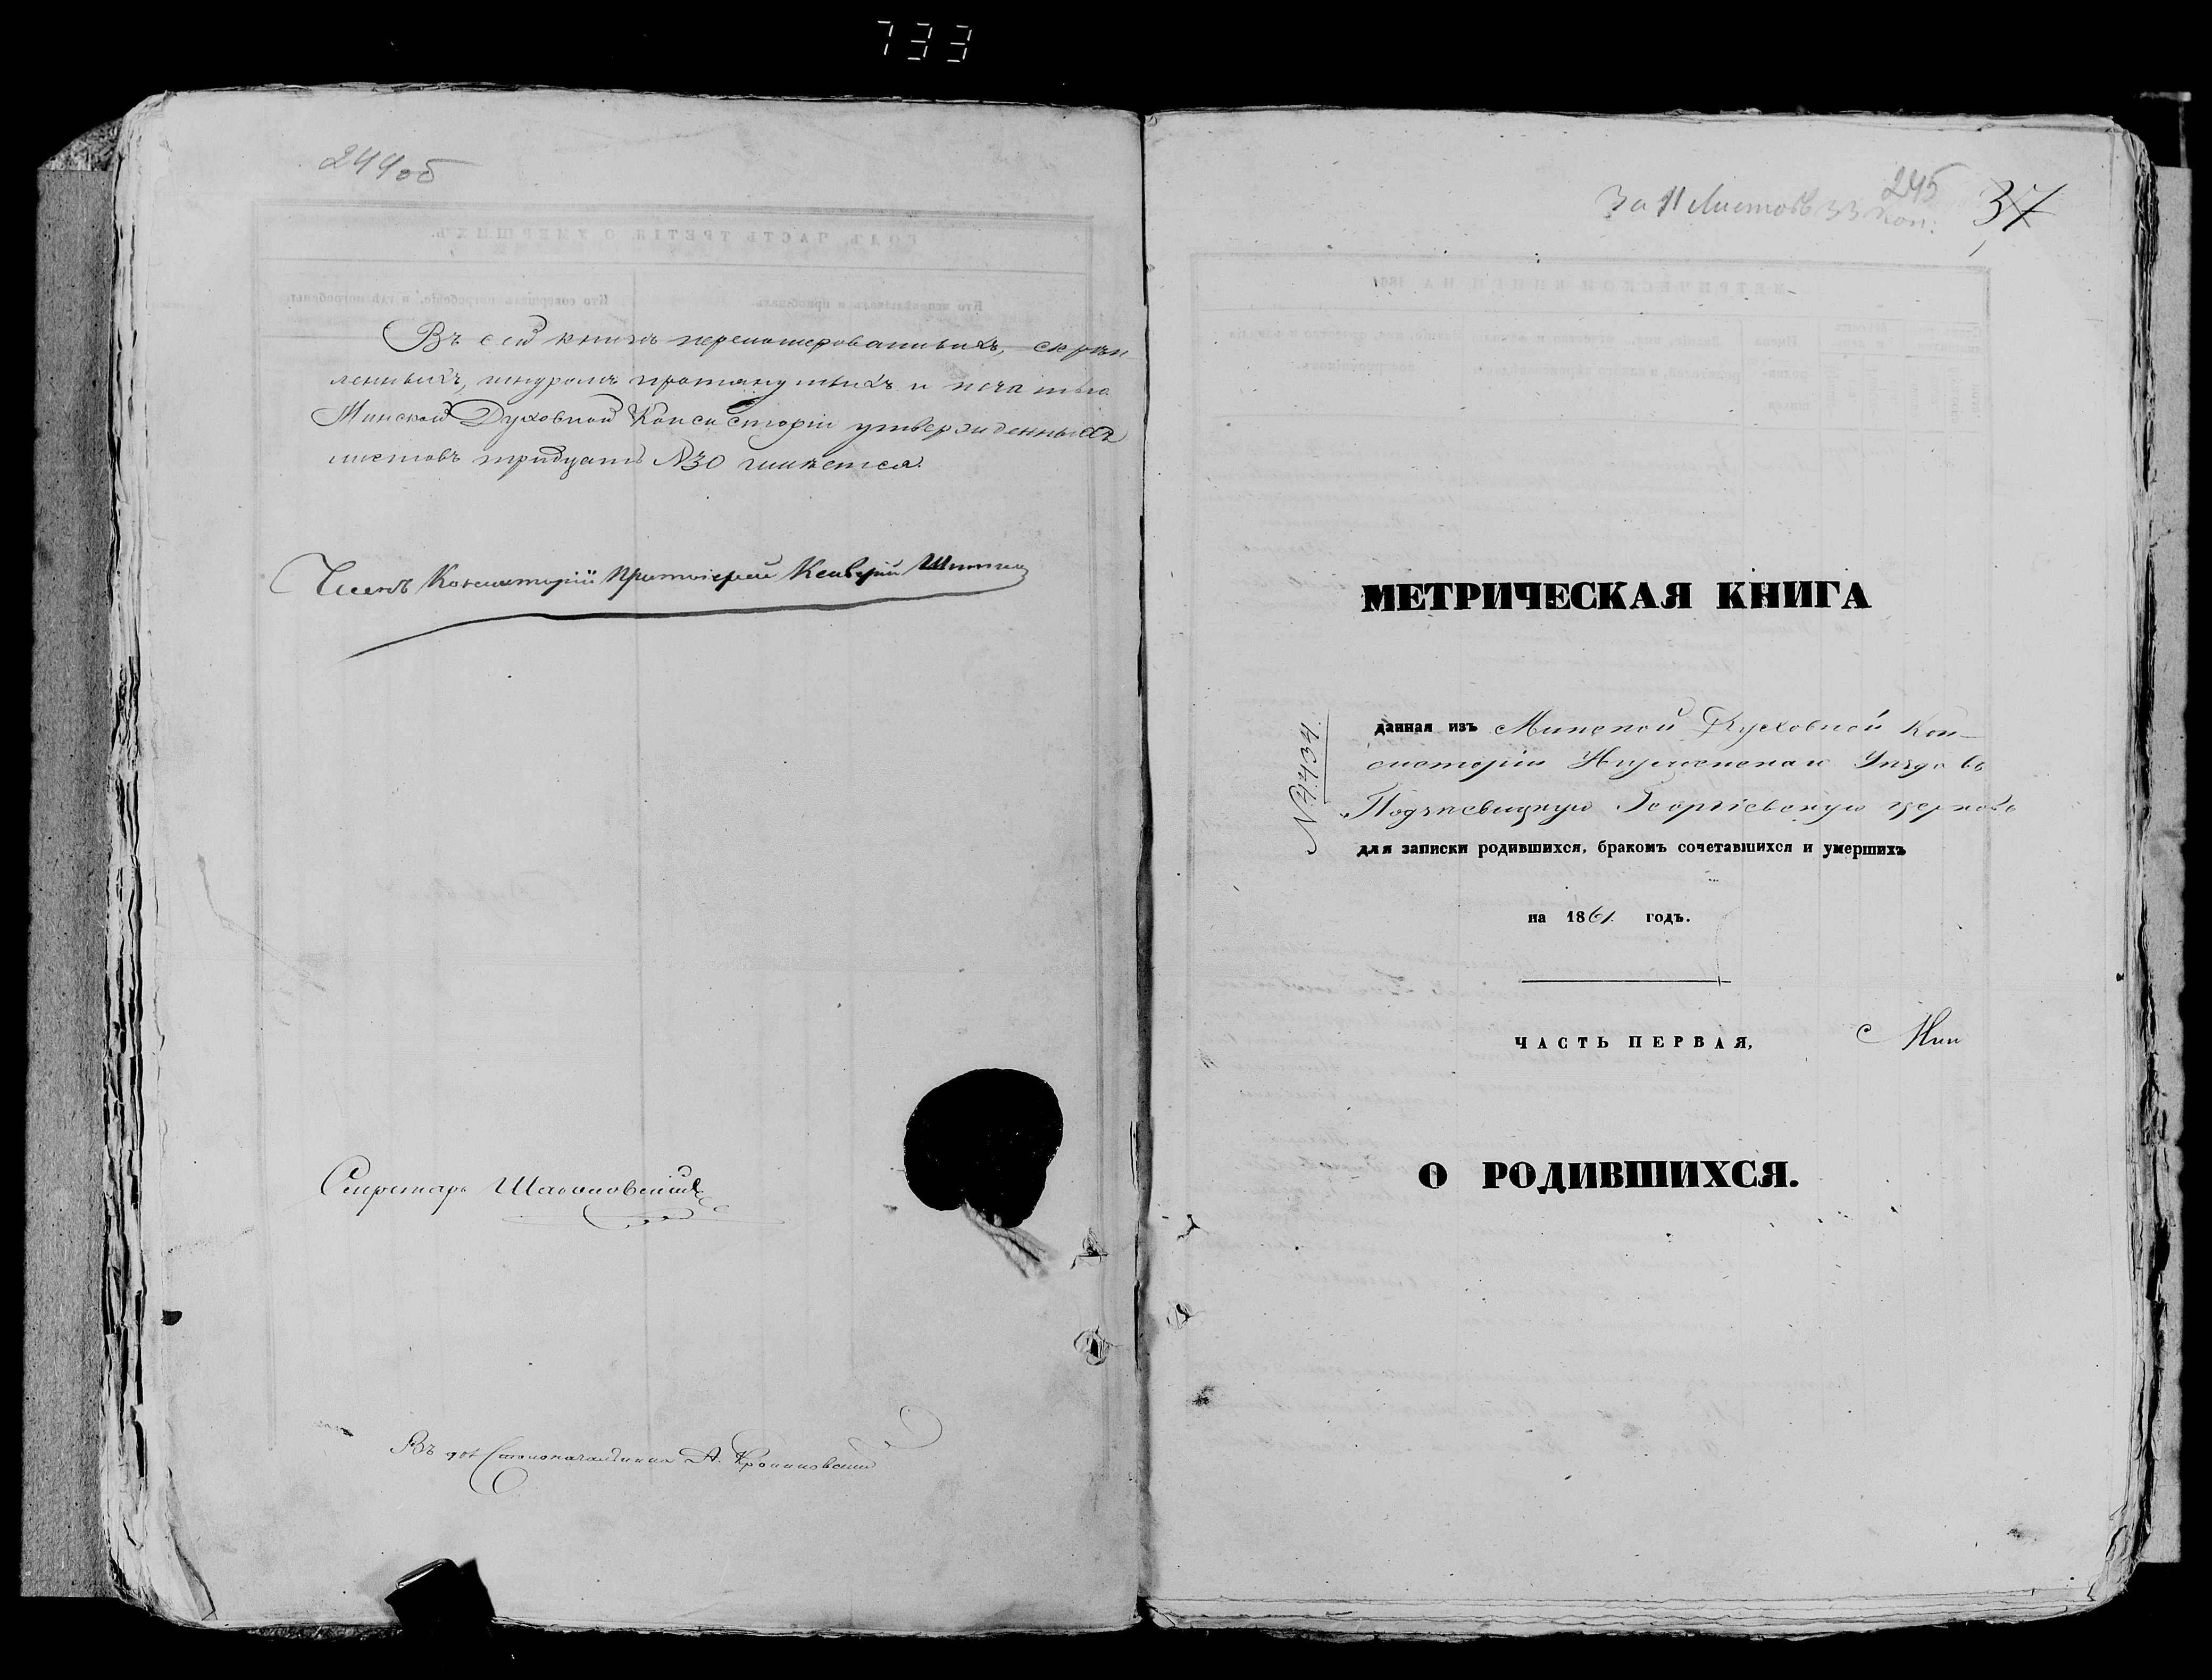 733
244об
Въ сей книгѣ перенумерованныхъ, скрѣп
ленныхъ, шнуромъ протянутыхъ и печатью
Минской Духовной Консисторіи утвержденныхъ
листовъ тридцать №30 числится.
Членъ Консисторіи Протоіерей
Секретарь
Въ д. Столоначальника А.
245
За 11 листовъ 33 коп: 37
МЕТРИЧЕСКАЯ КНИГА
№ 4434
данная изъ Минской Духовной Кон-
систоріи Игуменскаго Уѣзда въ
Георгіевскую церковь
для записки родившихся, бракомъ сочетавшихся и умершихъ
на 1861 годъ.
ЧАСТЬ ПЕРВАЯ,
О РОДИВШИХСЯ.